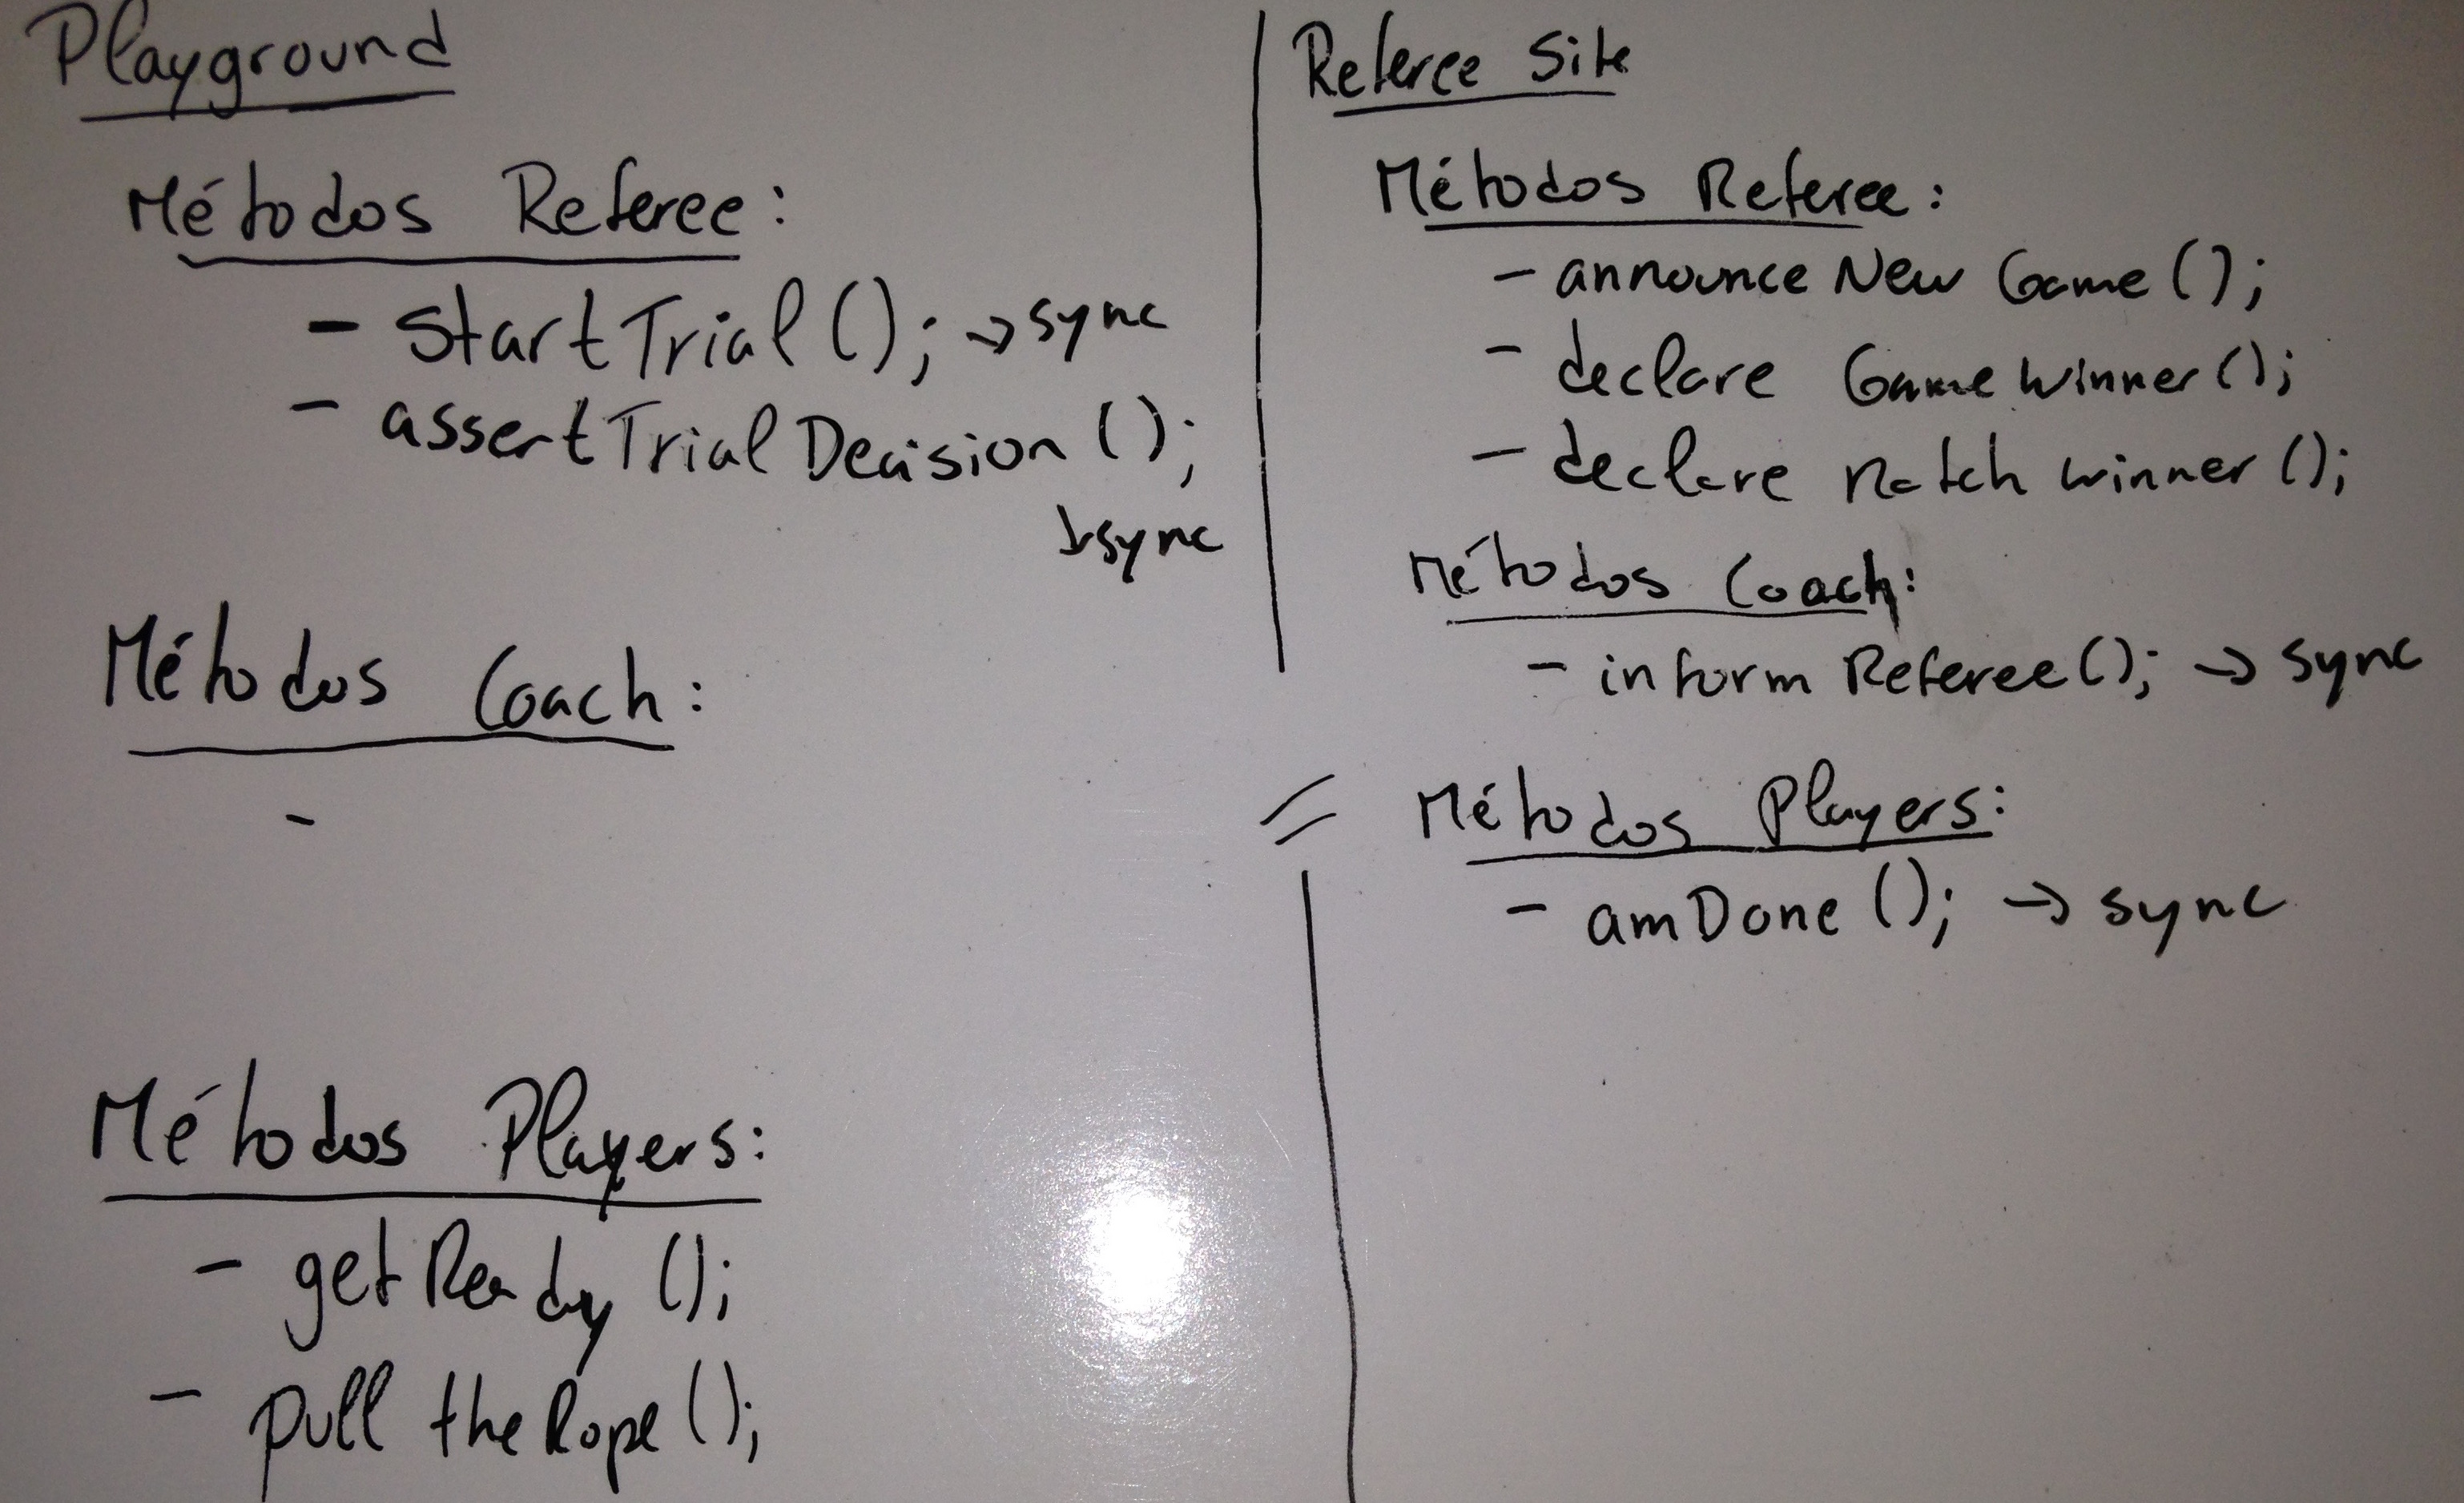 Playground
Métodos Referee:
- startTrial(); → sync
- assertTrialDecision();
↳ sync
Métodos Coach:
-
Métodos Players:
- getReady();
- pull theRope();
Referee Site
Métodos Referee:
- announce New Game();
- declare Game Winner();
- declare Match winner();
Métodos Coach:
- inform Referee(); → sync
= Métodos Players:
- amDone(); → sync